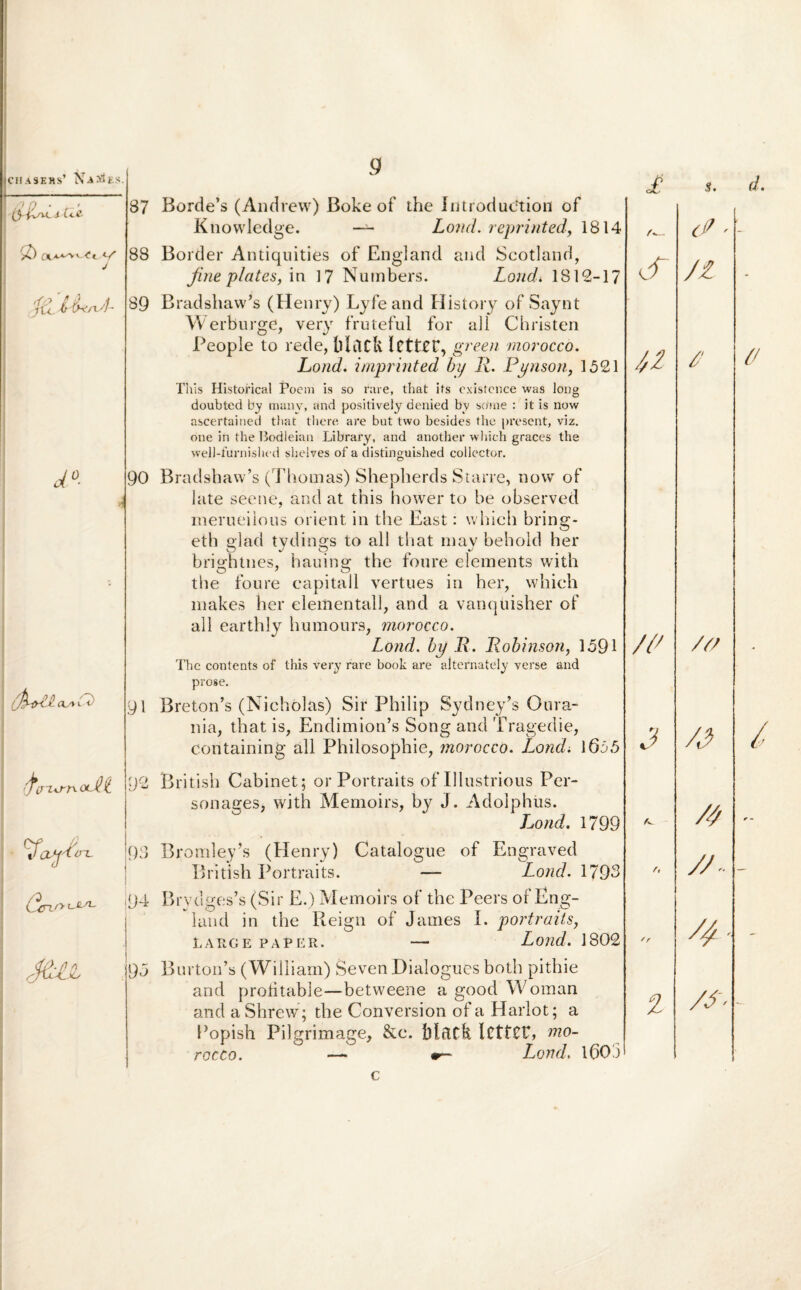 9
CHASERS' NAMES.
£ s. d.
87 Borde's (Andrew) Boke of the Introduction of
Knowledge. — Lond. reprinted, 1814
88 Border Antiquities of England and Scotland,
fine plates, in 17 Numbers. Lond. 1812-17
5 12 -
89 Bradshaw's (Henry) Lyfe and History of Saynt
Werburge, very fruteful for all Christen
People to rede, black letter, green morocco.
Lond. imprinted by R. Pynson, 1521
42 0 0
This Historical Poem is so rare, that its existence was long
doubted by many, and positively denied by some : it is now
ascertained that there are but two besides the present, viz.
one in the Bodleian Library, and another which graces the
well-furnished shelves of a distinguished collector.
do.
90 Bradshaw's (Thomas) Shepherds Starre, now of
late seene, and at this hower to be observed
merueilous orient in the East : which bring-
eth glad tydings to all that may behold her
brightnes, hauing the foure elements with
the foure capitall vertues in her, which
makes her elementall, and a vanquisher of
all earthly humours, morocco.
Lond. by R. Robinson, 1591
10 10 -
The contents of this very rare book are alternately verse and
prose.
91 Breton's (Nicholas) Sir Philip Sydney's Oura-
nia, that is, Endimion's Song and Tragedie,
containing all Philosophie, morocco. Lond. 1655
3 13 6
92 British Cabinet; or Portraits of Illustrious Per-
sonages, with Memoirs, by J. Adolphus.
Lond. 1799
14
Taylor
93 Bromley's (Henry) Catalogue of Engraved
British Portraits. — Lond. 1793
11 -
94 Brydges's (Sir E.) Memoirs of the Peers of Eng-
land in the Reign of James I. portraits,
LARGE PAPER. — Lond. 1802
14 -
Hill
95 Burton's (William) Seven Dialogues both pithie
and profitable—betweene a good Woman
and a Shrew; the Conversion of a Harlot; a
Popish Pilgrimage, &c. black letter, mo-
rocco. — — Lond. 1603
2 15 -
C